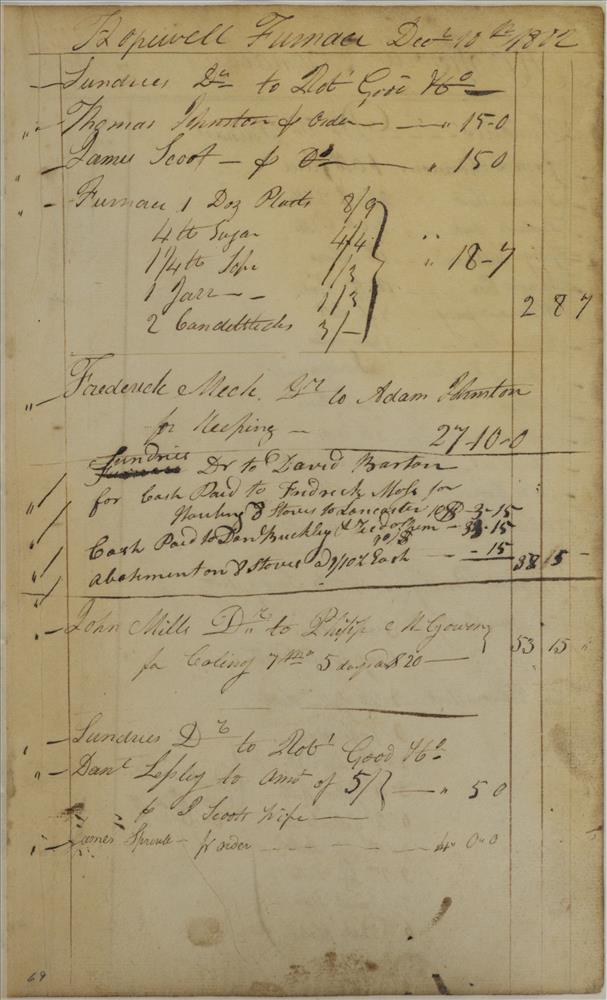 Hopewell Furnace Decr 10th 1802
Sundries Dr to Robt Good & Co
Thomas Johnston pr Order — " 15-0
James Scoot — pr Do " 15 0
Furnace 1 Doz Plats 8/9
4 lb Sugar 4/4 " 18-7
1 1/4 lb Sope 1/3
1 Jarr — 1/3 2 8 7
2 Candelsticks 3/—
Frederick Meck. Dr to Adam Johnston
for Keeping — 27-10-0
Sundries
Furnace Dr to David Barton
for Cash Paid to Fredrick Moss for
Hauling 8 Stoves to Lancaster - 15
Cash Paid to Danl Buckley & - 15
Abatement on 8 Stoves a 1/10½ Each - 15 38 15 -
John Mills Dr to Philip McGowen 53 15 "
for Coling 7 mo 5 days a $20 —
Sundries Dr to Robt Good & Co
Danl Lesley to Amt of 5/ — " 5 0
pr J Scoots Wife —
James Sprowl — pr order - - - - 4 " 0 " 0
69